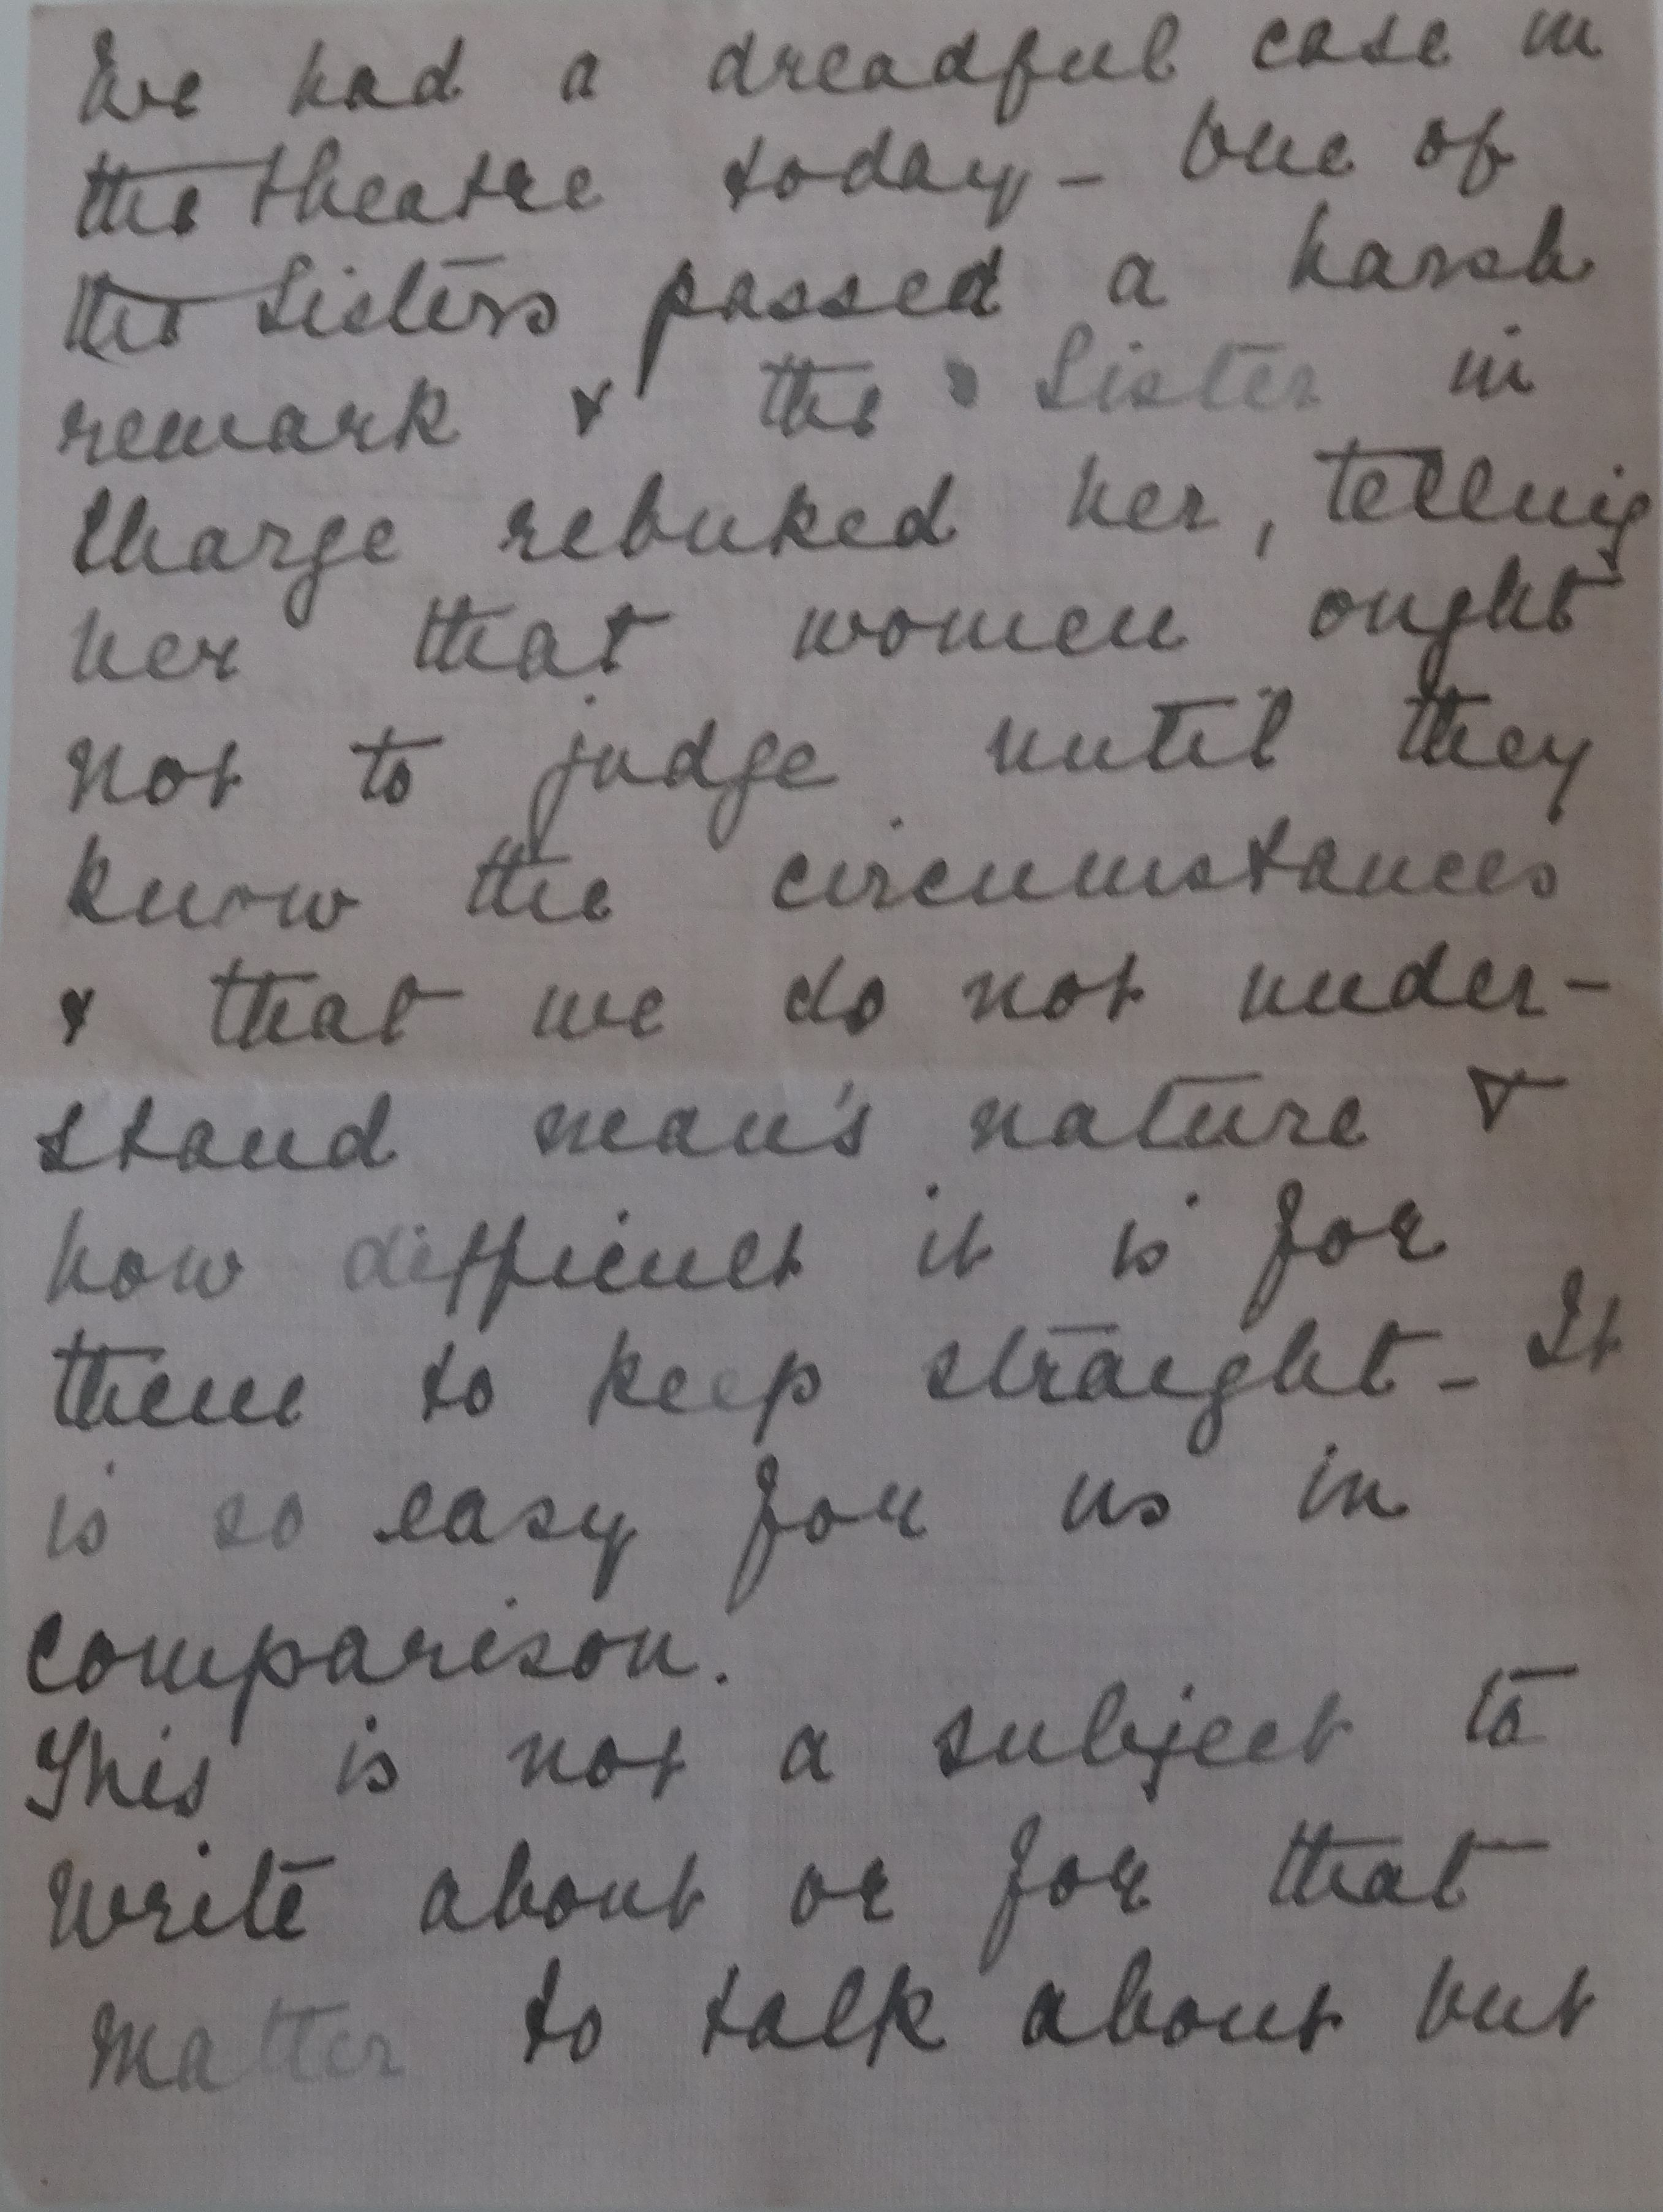 We had a dreadful case in
the theatre today – One of
the Sisters passed a harsh
remark & the Sister in
Charge rebuked her, telling
her that women ought
not to judge until they
know the circumstances
& that we do not under-
stand man's nature &
how difficult it is for
them to keep straight – It
is so easy for us in
comparison.
This is not a subject to
write about or for that
matter to talk about but